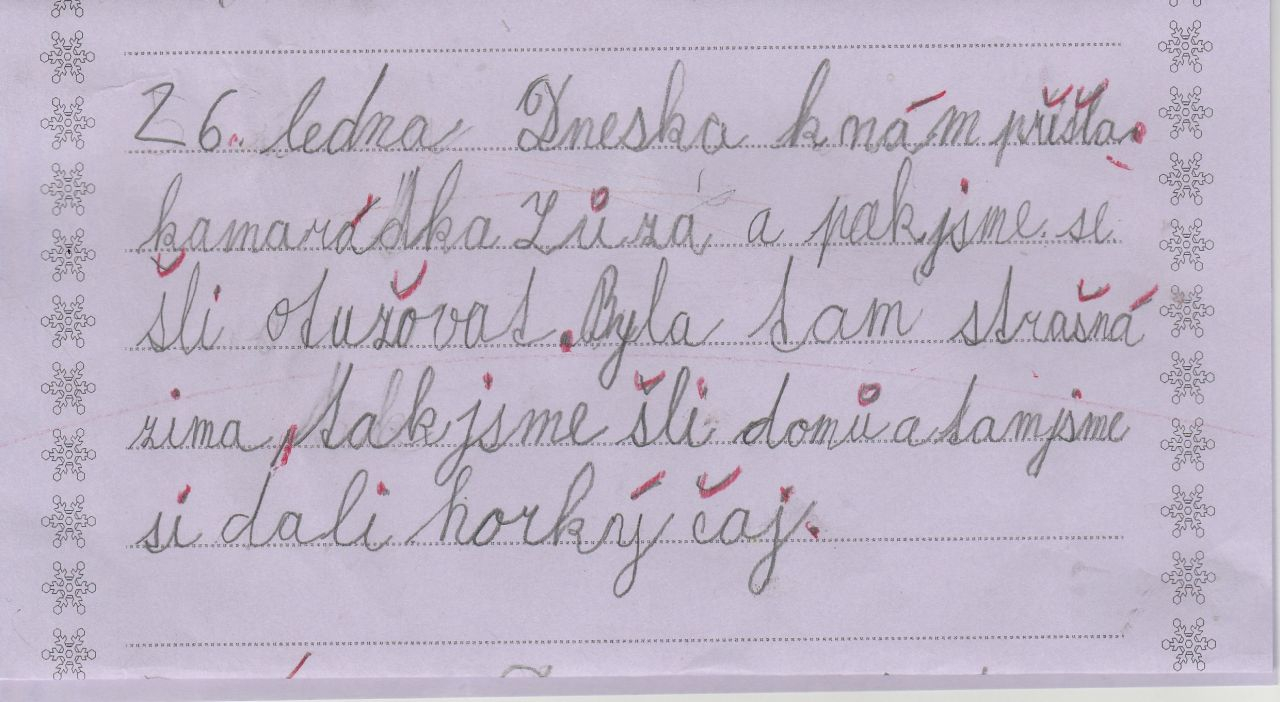 26. ledna Dneska k nám přišla.
kamarádka Zůza a pak jsme se
šli otužovat. Byla tam strašná
zima, tak jsme šli domů a tam jsme
si dali horký čaj.